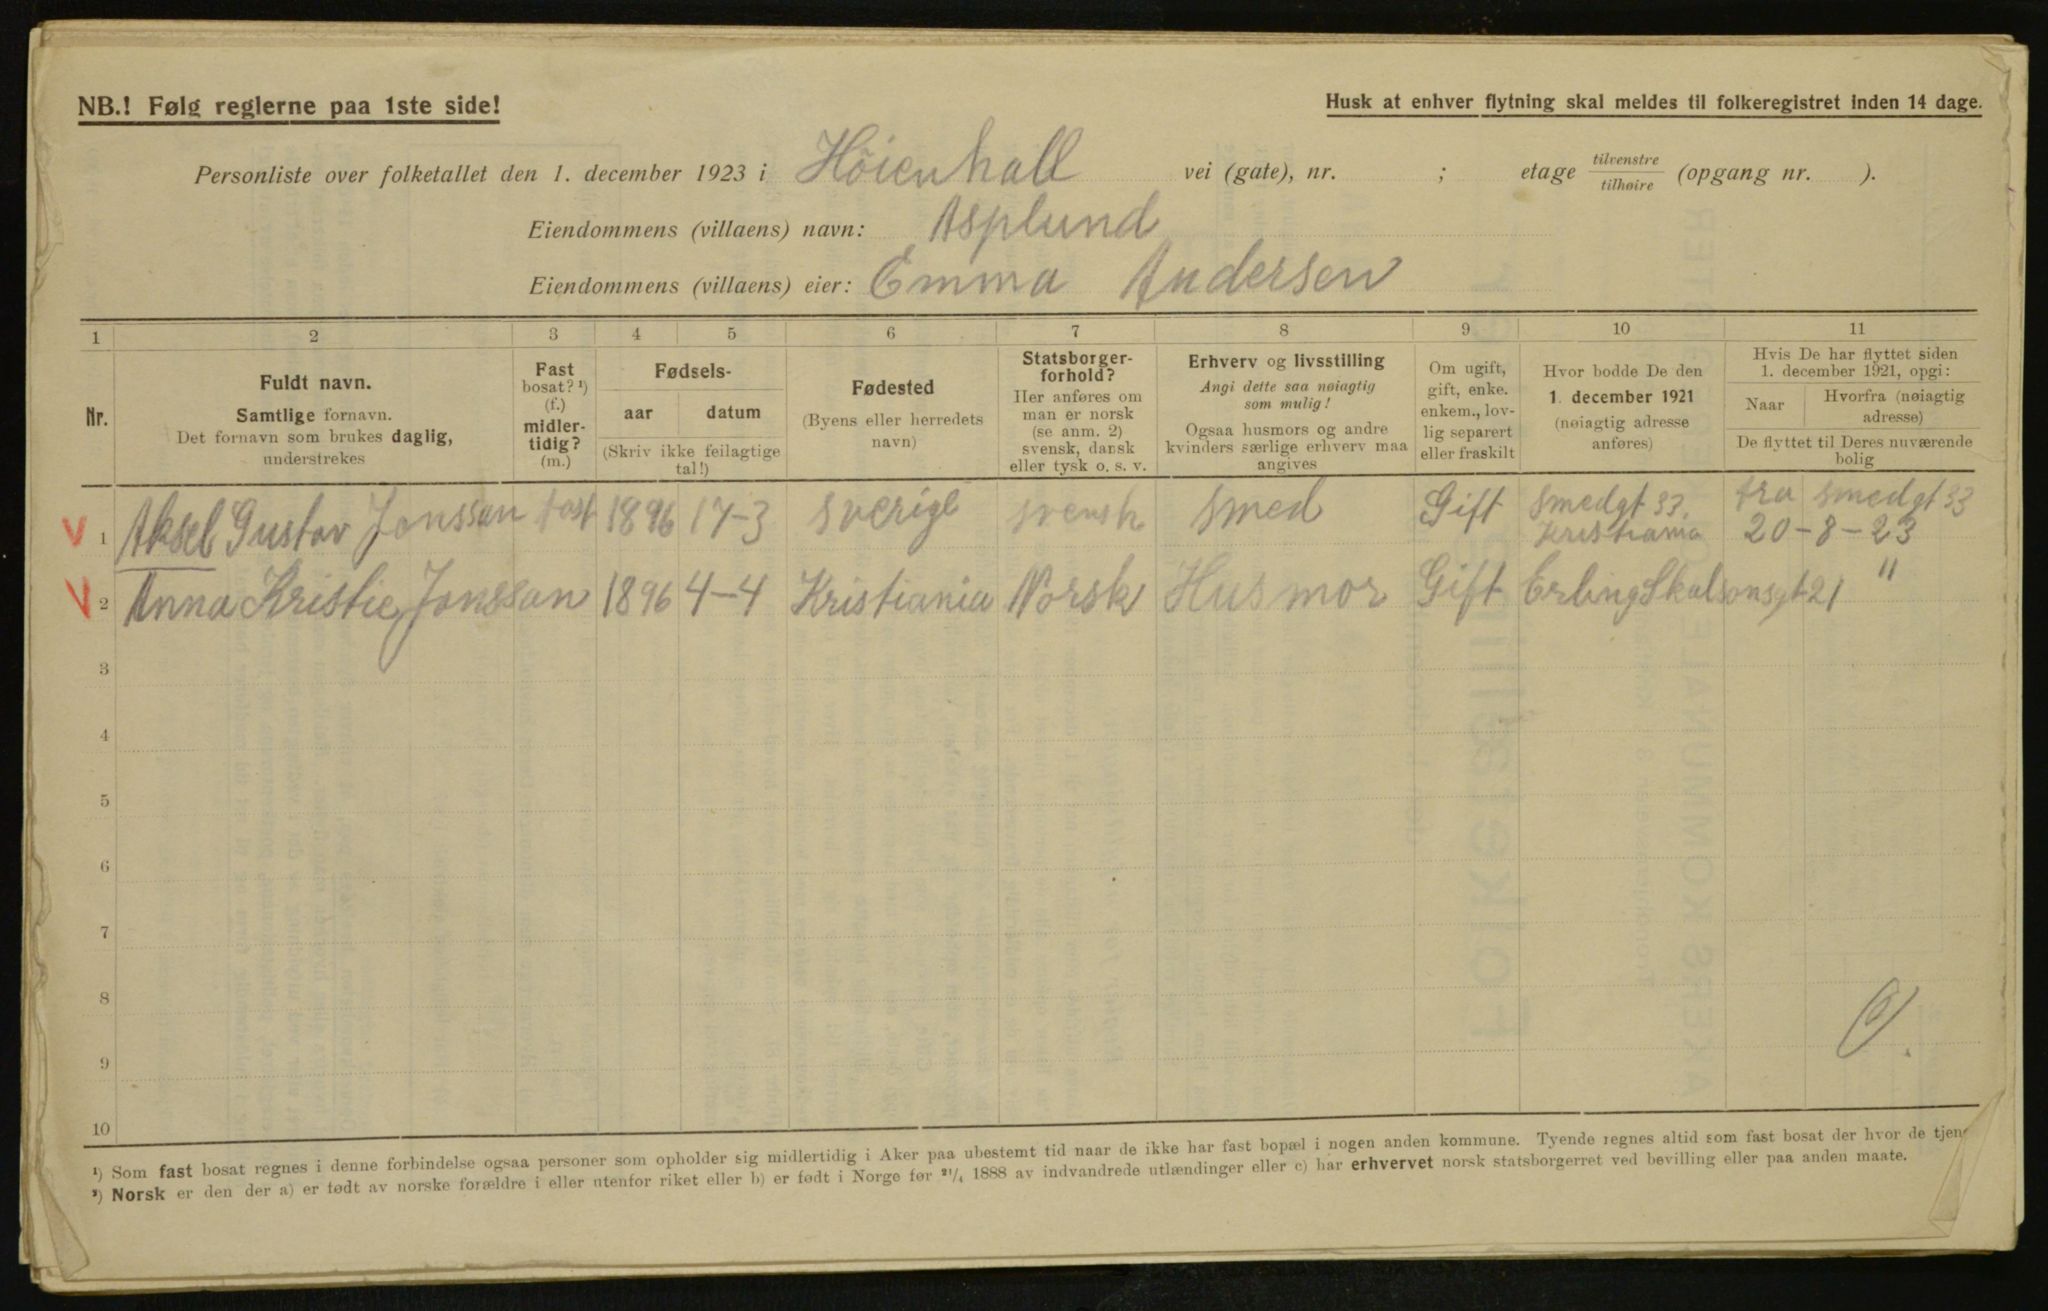 NB.! Følg reglerne paa 1ste side!
Husk at enhver flytning skal meldes til folkeregistret inden 14 dage.
Personliste over folketallet den 1. december 1923 i Höienhall vei (gate), nr. ; etage tilvenstre tilhøire (opgang nr. ).
Eiendommens (villaens) navn: Asplund
Eiendommens (villaens) eier: Emma Andersen
1 2 3 4 5 6 7 8 9 10 11
Nr.
Fuldt navn.
Samtlige fornavn.
Det fornavn som brukes daglig,
understrekes
Fast
bosat? ¹)
(f.)
midler-
tidig?
(m.)
Fødsels-
aar datum
(Skriv ikke feilagtige
tal!)
Fødested
(Byens eller herredets
navn)
Statsborger-
forhold?
Her anføres om
man er norsk
(se anm. 2)
svensk, dansk
eller tysk o. s. v.
Erhverv og livsstilling
Angi dette saa nøiagtig
som mulig!
Ogsaa husmors og andre
kvinders særlige erhverv maa
angives
Om ugift,
gift, enke.
enkem., lov-
lig separert
eller fraskilt
Hvor bodde De den
1. december 1921
(nøiagtig adresse
anføres)
Hvis De har flyttet siden
1. december 1921, opgi:
Naar
Hvorfra (nøiagtig
adresse)
De flyttet til Deres nuværende
bolig
1 Aksel Gustav Jonssan fast 1896 17-3 Sverige svensk smed Gift Smedgt 33. Kristiania fra smedgt 33 20-8-23
2 Anna Kristie Jonssan 1896 4-4 Kristiania Norsk Husmor Gift Erling Skalsonsgt 21 "
3
4
5
6
7
8
9
10
¹) Som fast bosat regnes i denne forbindelse ogsaa personer som opholder sig midlertidig i Aker paa ubestemt tid naar de ikke har fast bopæl i nogen anden kommune. Tyende regnes altid som fast bosat der hvor de tjen
²) Norsk er den der a) er født av norske forældre i eller utenfor riket eller b) er født i Norge før ²¹/₄ 1888 av indvandrede utlændinger eller c) har erhvervet norsk statsborgerret ved bevilling eller paa anden maate.